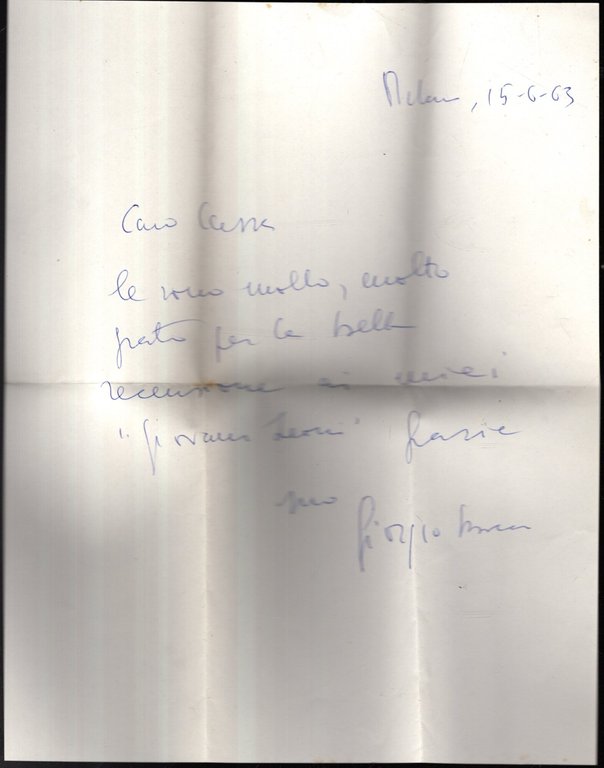 Milano, 15-6-63
Caro
le sono molto, molto
grato per la bella
recensione ai miei
"Giovani leoni" Grazie
suo Giorgio Bocca